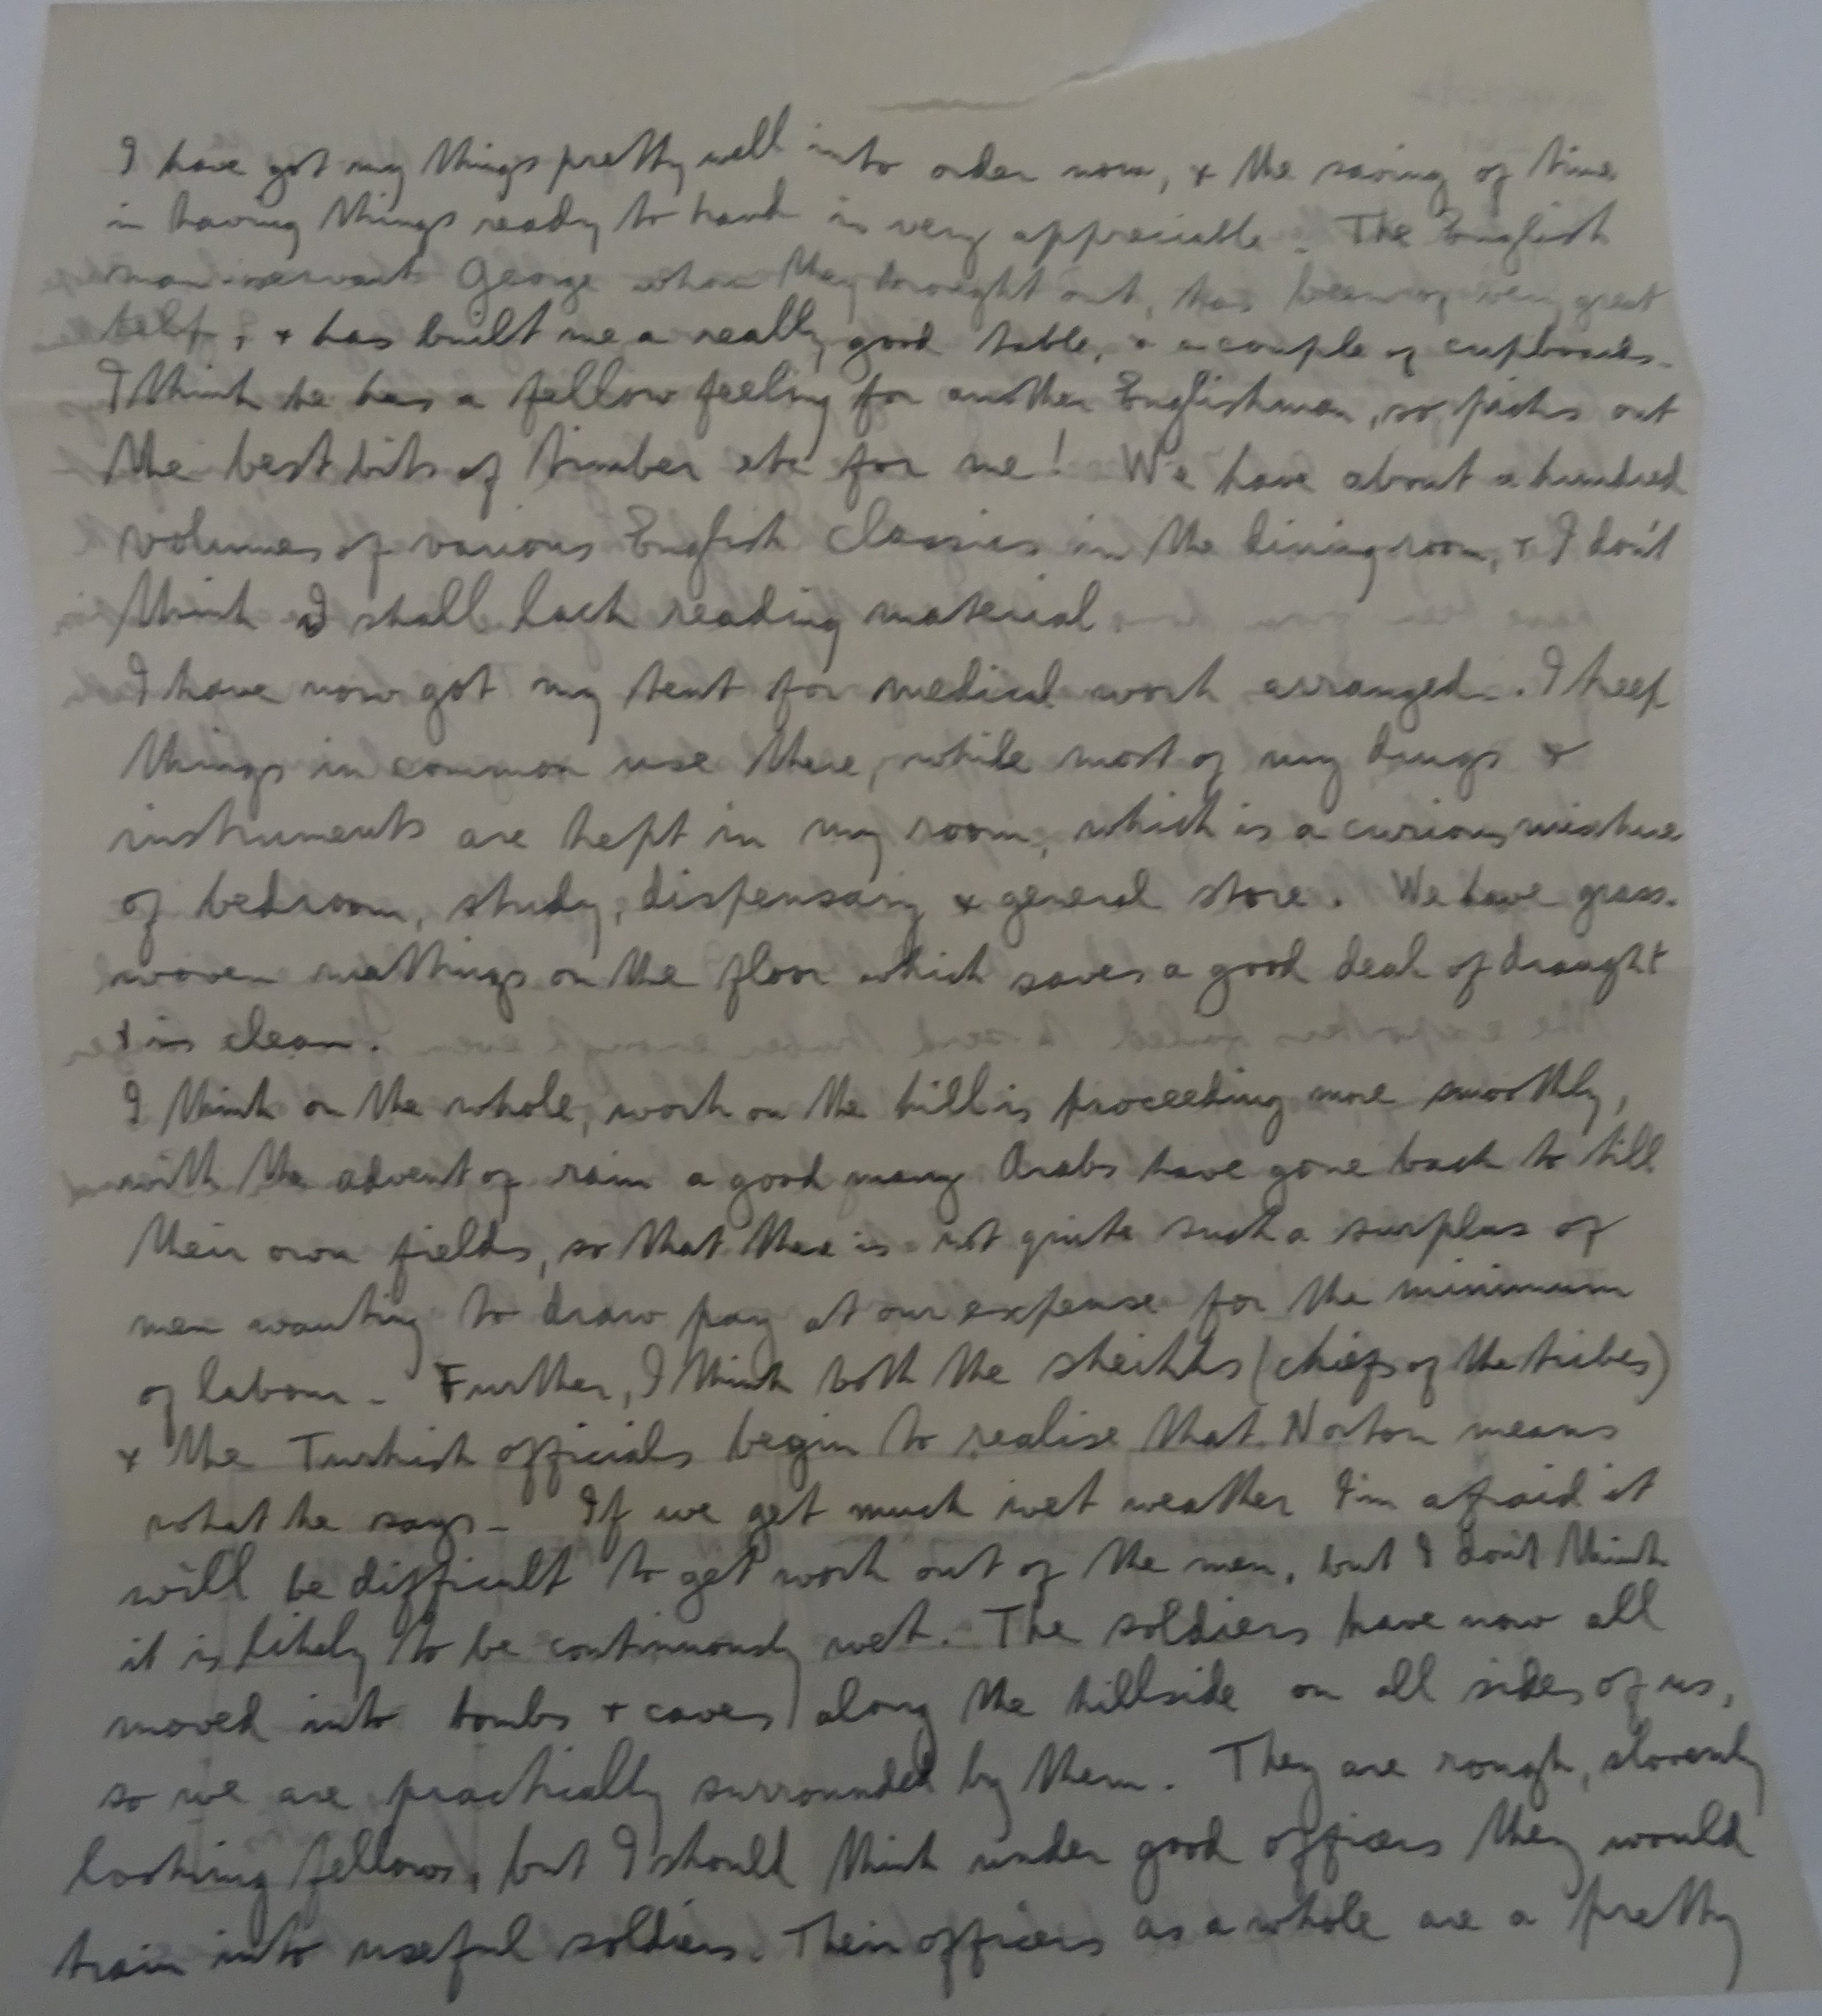 I have got my things pretty well into order now, & the saving of time
in having things ready to hand is very appreciable. The English
man-servant George whom they brought out, has been of very great
help, & has built me a really good table, & a couple of cupboards.
I think he has a fellow feeling for another Englishman, so picks out
the best bits of timber etc for me! We have about a hundred
volumes of various English classics in the dining room, & I don't
think I shall lack reading material.
I have now got my tent for medical work arranged. I keep
things in common use there, while most of my drugs &
instruments are kept in my room, which is a curious mixture
of bedroom, study, dispensary & general store. We have grass-
woven mattings on the floor which saves a good deal of draught
& is clean.
I think on the whole, work on the hill is proceeding more smoothly,
with the advent of rain a good many Arabs have gone back to till
their own fields, so that there is not quite such a surplus of
men wanting to draw pay at our expense for the minimum
of labour. Further, I think both the sheikhs (chiefs of the tribes)
& the Turkish officials begin to realise that Norton means
what he says. If we get much wet weather I'm afraid it
will be difficult to get work out of the men, but I don't think
it is likely to be continuously wet. The soldiers have now all
moved into tombs & caves along the hillside on all sides of us,
so we are practically surrounded by them. They are rough, slovenly
looking fellows, but I should think under good officers they would
train into useful soldiers. Their officers as a whole are a pretty